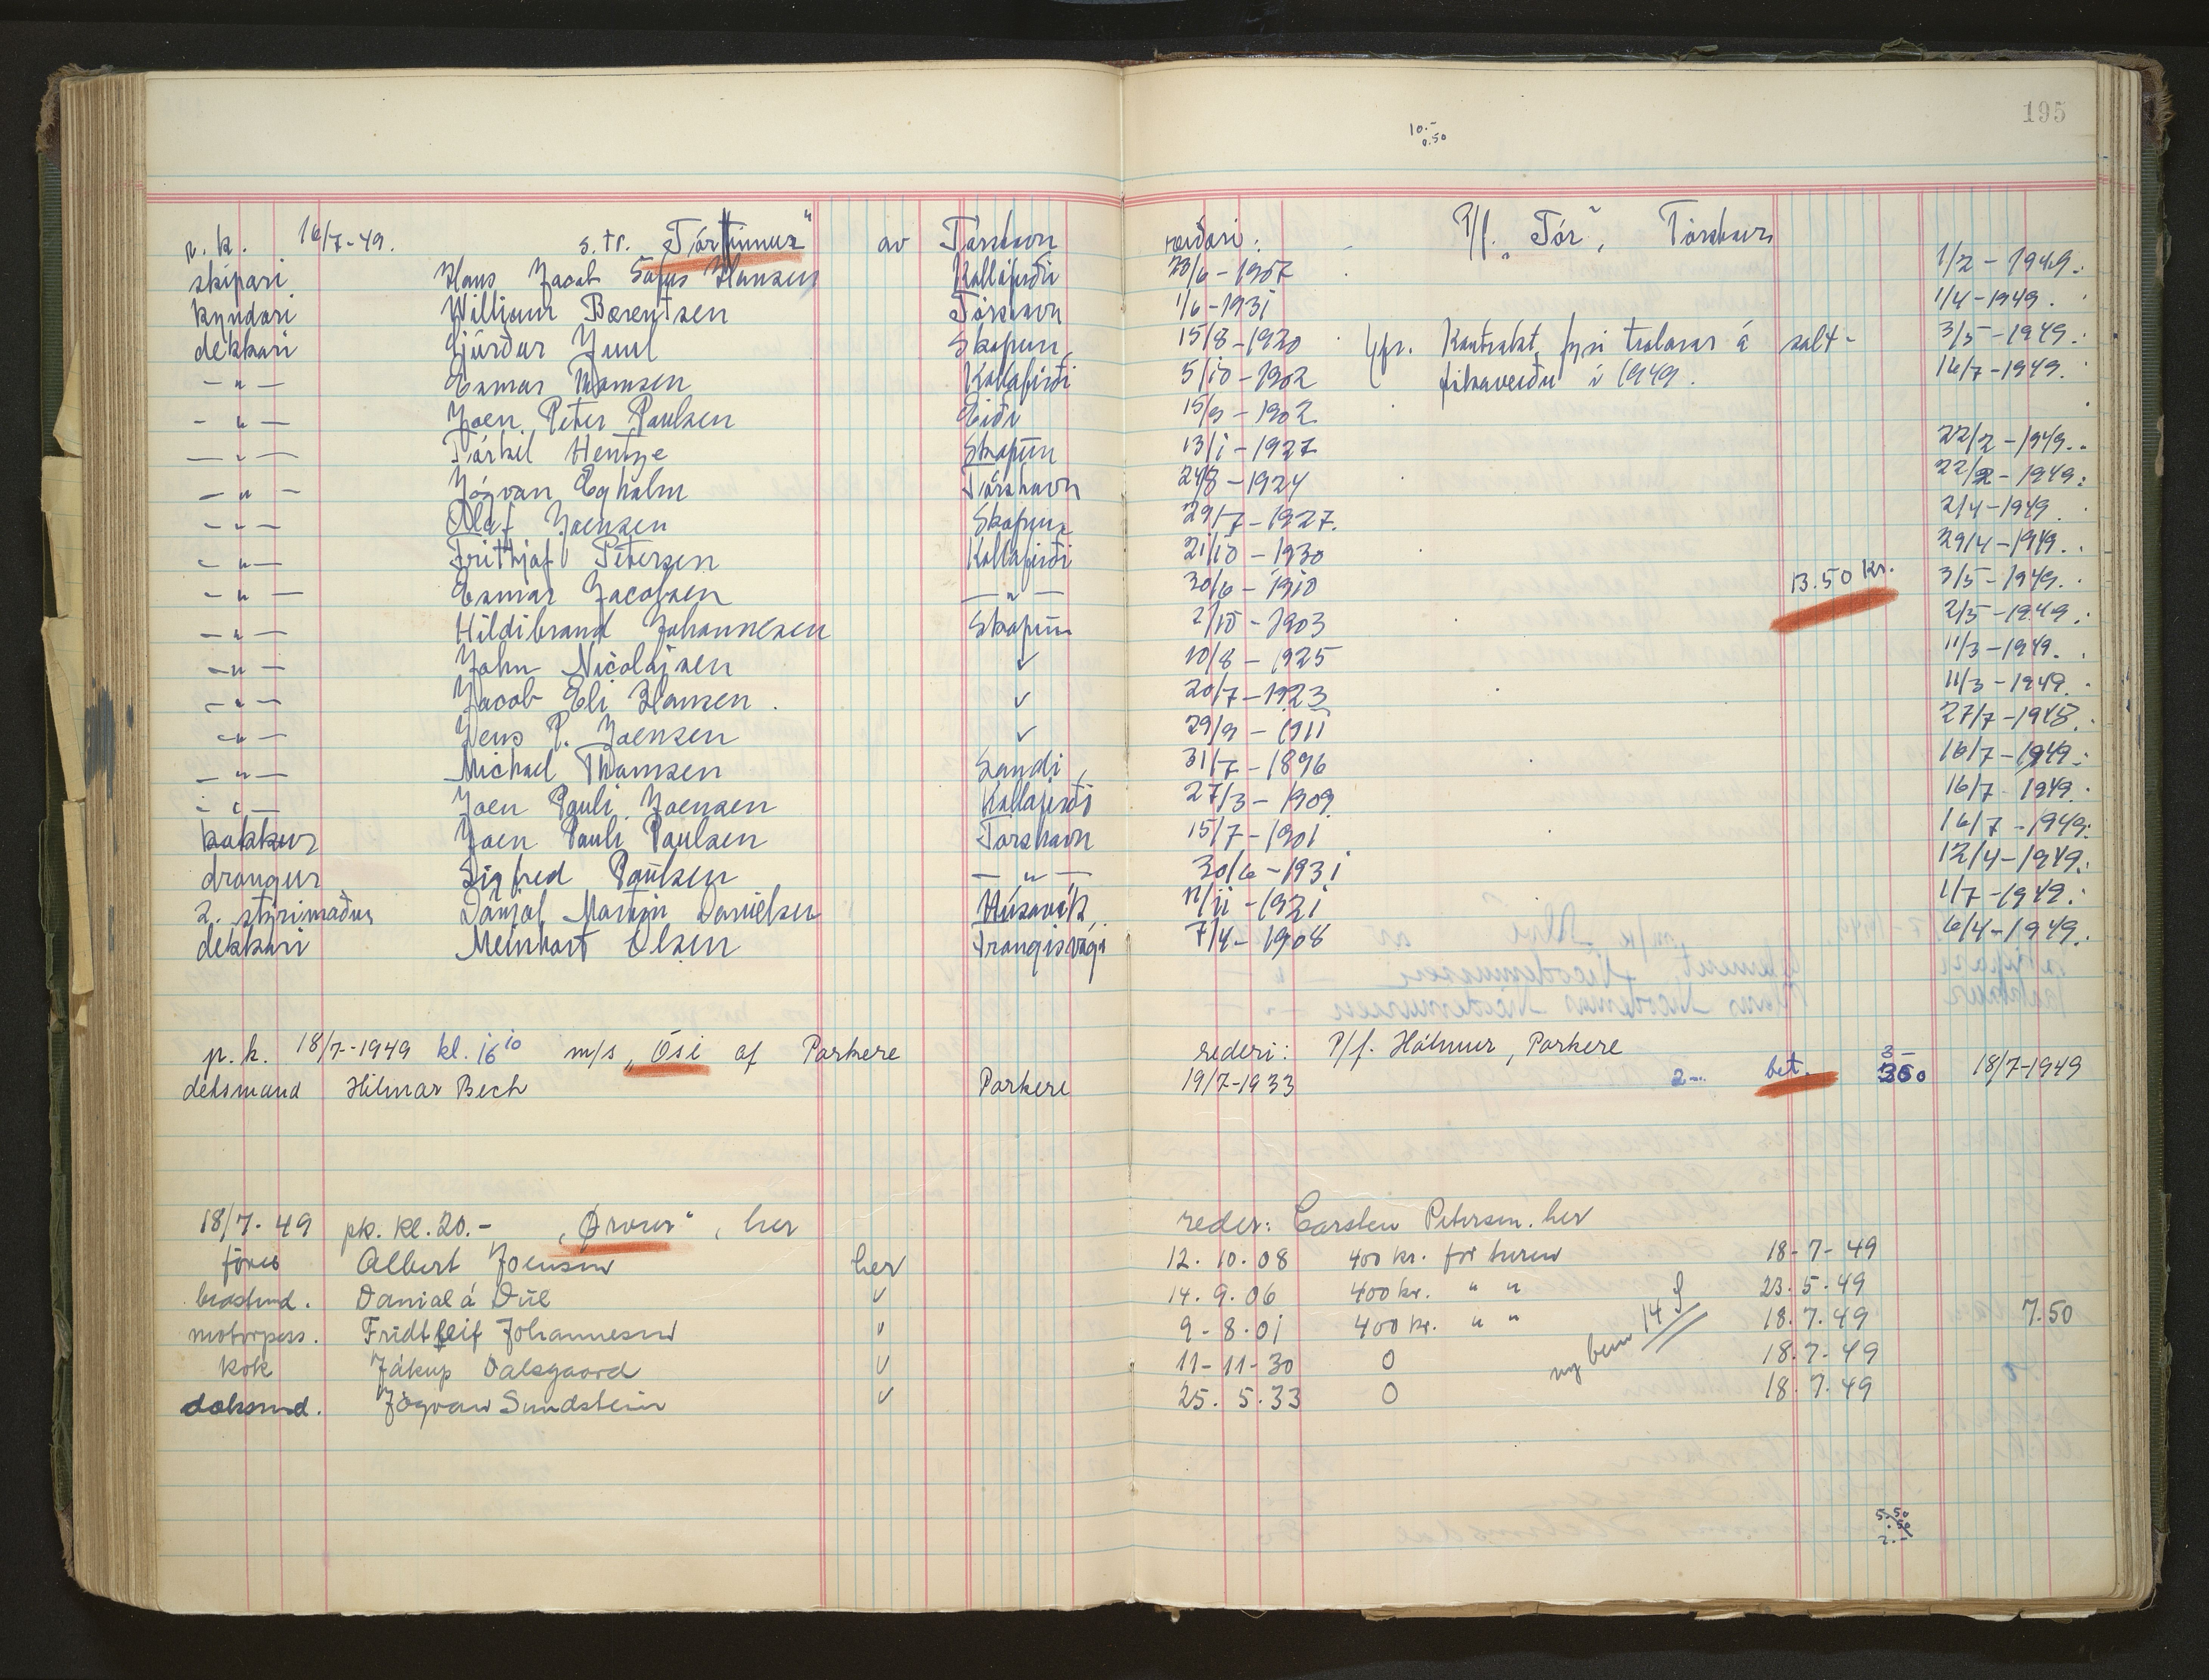 195
10.-
0.50
p. k. 16/7-49. s. tr. "Tórfinnur" av Tórshavn reiðari: P/f. "Tór", Tórshavn
skipari Hans Jacob Sofus Hansen Kollafirði 23/6-1907 1/2-1949.
kyndari Williaur Bærentsen Tórshavn 1/6-1931 1/4-1949.
dekkari Gjúrður Juul Skopun 15/8-1920 Yvr. Kontrakt fyri trolarar á salt- 3/5-1949.
-"- Esmar Thomsen Kollafirði 5/10-1902 fiskaveiðu í 1949. 16/7-1949.
-"- Joen Peter Paulsen Eiði 15/9-1902
-"- Tórkil Hentze Skopun 13/1-1927 22/2-1949.
-"- Jógvan Egholm Tórshavn 24/8-1924 22/2-1949.
-"- Olaf Joensen Skopun 29/7-1927. 2/4-1949.
-"- Frithjof Petersen Kollafirði 21/10-1930 29/4-1949.
-"- Esmar Jacobsen -"- 30/6-1910 13.50 kr. 3/5-1949.
-"- Hildibrand Johannesen Skopun 2/10-1903 2/5-1949.
-"- John Nicolajsen ✓ 10/8-1925 11/3-1949.
-"- Jacob Eli Hansen. ✓ 20/7-1923 11/3-1949.
-"- Jens P. Joensen ✓ 29/9-1911 27/7-1948.
-"- Michael Thomsen Sandi, 31/7-1896 16/7-1949.
-"- Joen Pauli Joensen Kollafirði 27/3-1909. 16/7-1949.
kokkur Joen Pauli Paulsen Tórshavn 15/7-1901 16/7-1949.
drongur Sigfred Poulsen -"- 30/6-1931 12/4-1949.
2. stýrimaður Dánjal Martin Danielsen Húsavík 11/11-1921 1/7-1949.
dekkari Meinhart Olsen Trongisvági 7/4-1908 6/4-1949.
p. k. 18/7-1949 kl. 16¹⁰ m/s "Ósi af Porkere rederi: P/f. Hólmur, Porkere
deksmand Hilmar Bech Porkere 19/7-1933 2- bet. 3- 350 18/7-1949
18/7-49 pk. kl. 20.- "Ørnur", her reder: Carsten Petersen. her
fører Albert Joensen her 12.10.08 400 kr. for turen 18-7-49
bestmd. Danial á Dúl ✓ 14.9.06 400 kr. " " 23.5.49
motorpass. Fridtleif Johannesen " 9-8.01 400 kr. " " 18.7.49 7.50
kok Jákup Dalsgaard ✓ 11-11-30 0 18.7-49
deksmd. Jógvan Sundstein ✓ 25.5.33 0 18.7.49
5.50
2.-